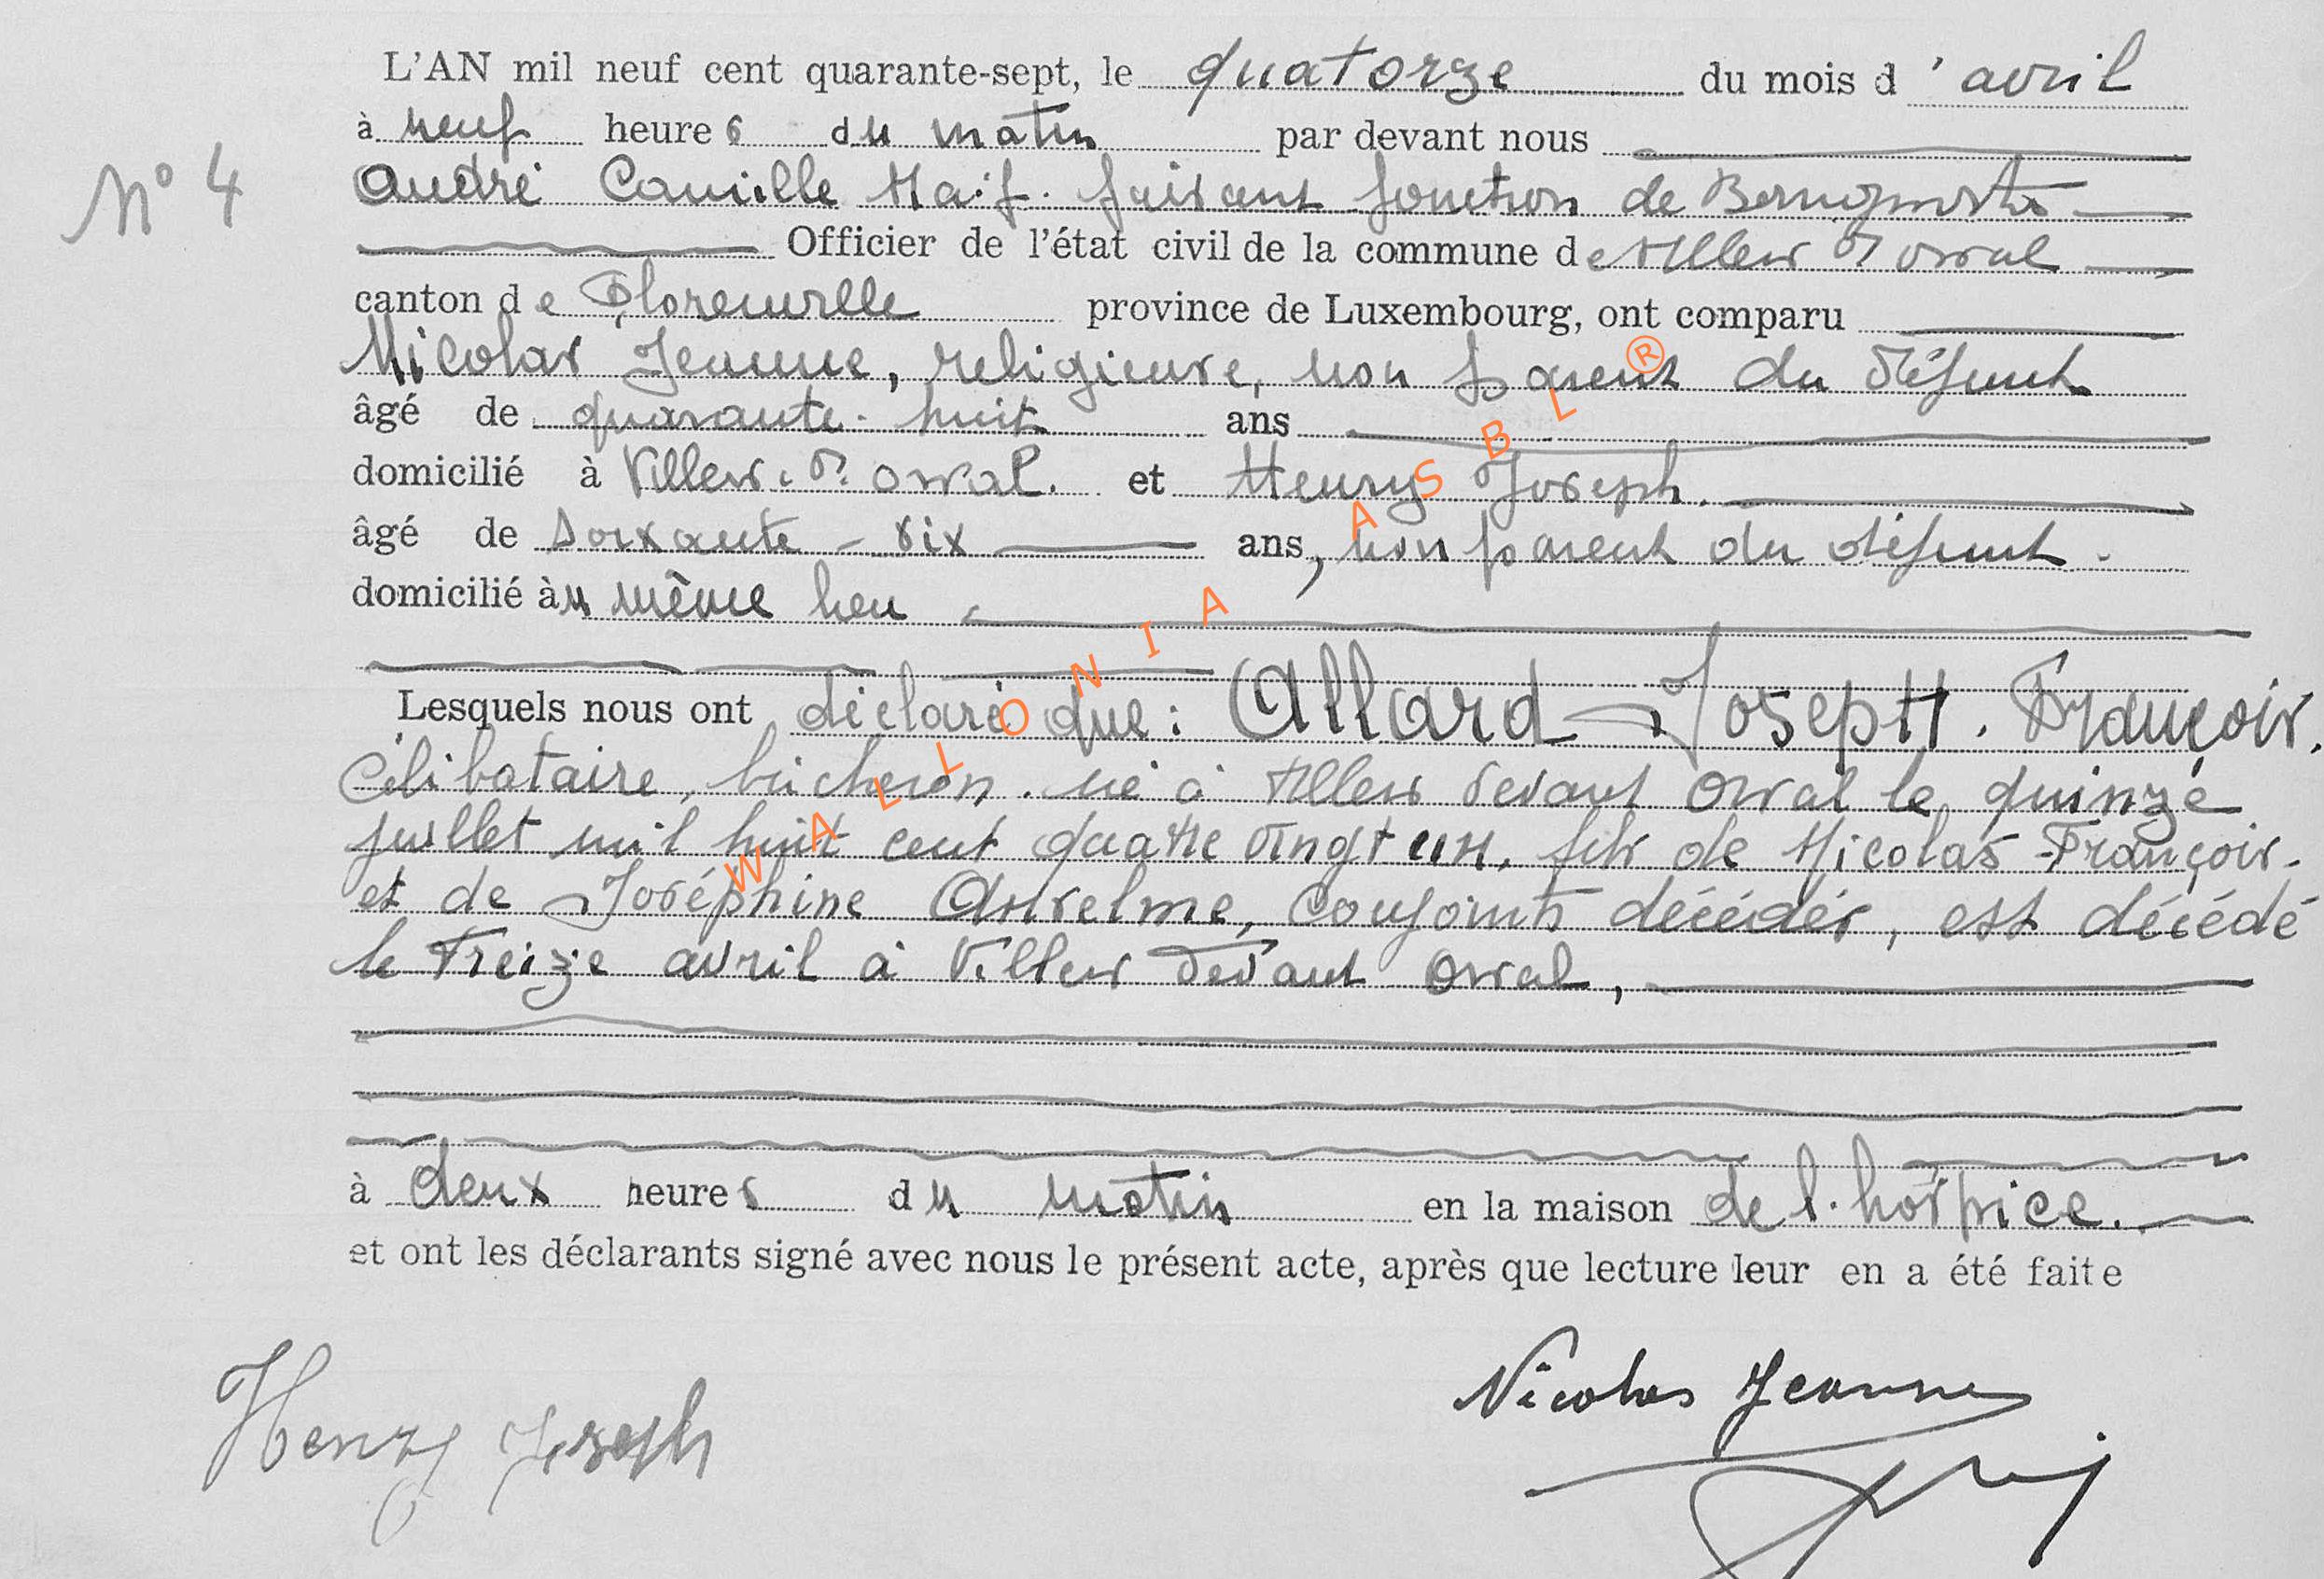 L'AN mil neuf cent quarante-sept, le quatorze du mois d'avril
à neuf heures du matin par devant nous
N° 4
André Camille Haif. faisant fonction de Bourgmestre
Officier de l'état civil de la commune de Villers Dt orval
canton de Florenville province de Luxembourg, ont comparu
Nicolas Jeanne, religieuse, non parent du défunt
âgé de quarante-huit ans
domicilié à Villers. Dt. orval. et Henry Joseph.
âgé de soixante-six ans, non parent du défunt.
domicilié àu même lieu
Lesquels nous ont déclaré que: Allard Joseph. François.
Célibataire, bûcheron. né à Villers devant Orval le quinze
juillet mil huit cent quatre vingt un, fils de Nicolas-François.
et de Joséphine Anselme, conjoints décédés, est décédé
le treize avril à Villers devant Orval,
à deux heures du matin en la maison de l'hospice.
et ont les déclarants signé avec nous le présent acte, après que lecture leur en a été faite
Nicolas Jeanne
Henry Joseph
WALLONIA ASBL ®